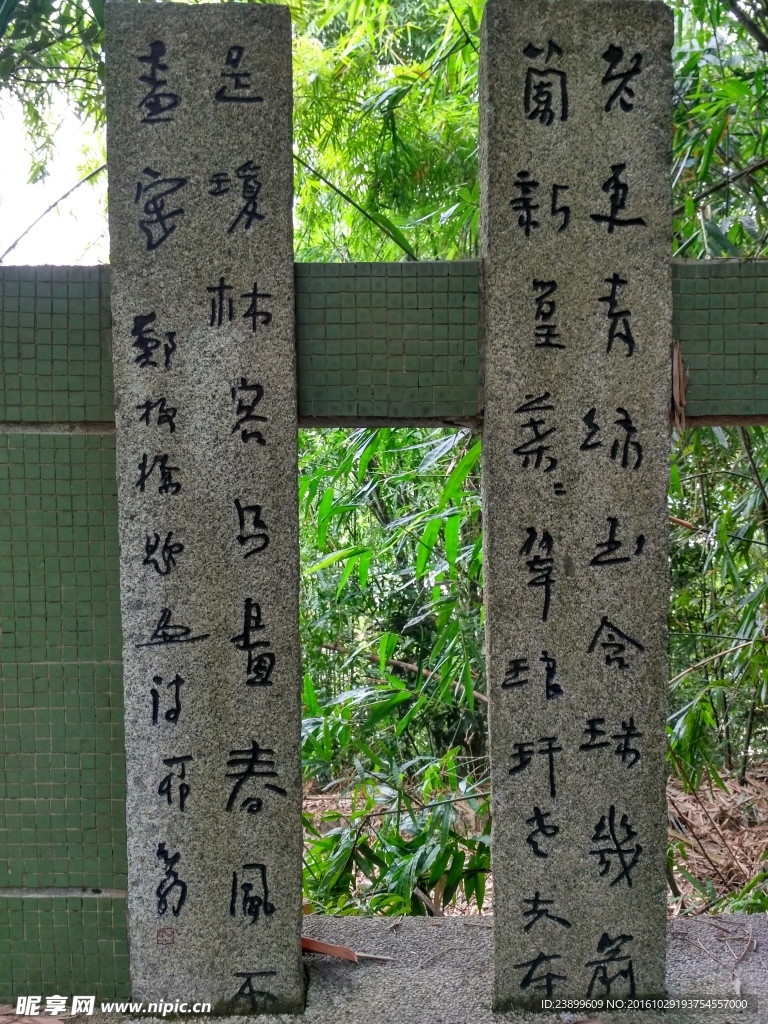 老更青綴玉含珠幾箭
蘭新篁葉〻翠琅玕老夫本
是瓊林客只畫春風不
畫寒 鄭板橋題画詩 翁
昵享网 www.nipic.cn
ID:23899609 NO:20161029193754557000